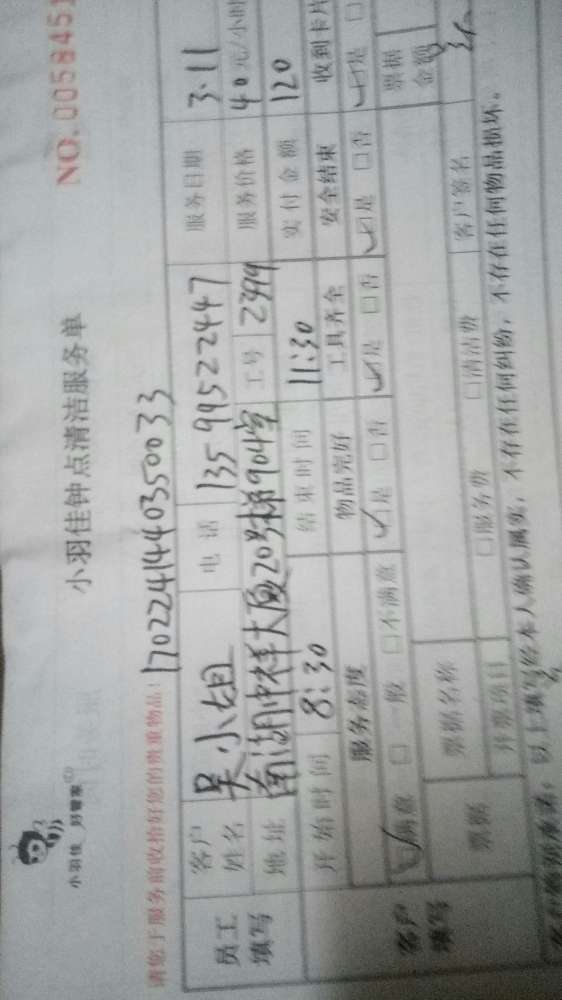 小羽佳 好管家
小羽佳钟点清洁服务单
NO.0058451
请您于服务前收拾好您的贵重物品！
1702241440350033
员工填写
客户姓名 吴小姐 电话 13599522447 服务日期 3.11
地址 南湖中祥大厦20号梯904室 工号 2999 服务价格 40元/小时
开始时间 8:30 结束时间 11:30 实付金额 120
客户填写
服务态度 物品完好 工具齐全 安全结束 收到卡片
满意 一般 不满意 是 否 是 否 是 否 是
票据 票据名称 票据金额
开票项目 服务费 清洁费 客户签名
以上填写经本人确认属实，不存在任何纠纷，不存在任何物品损坏。